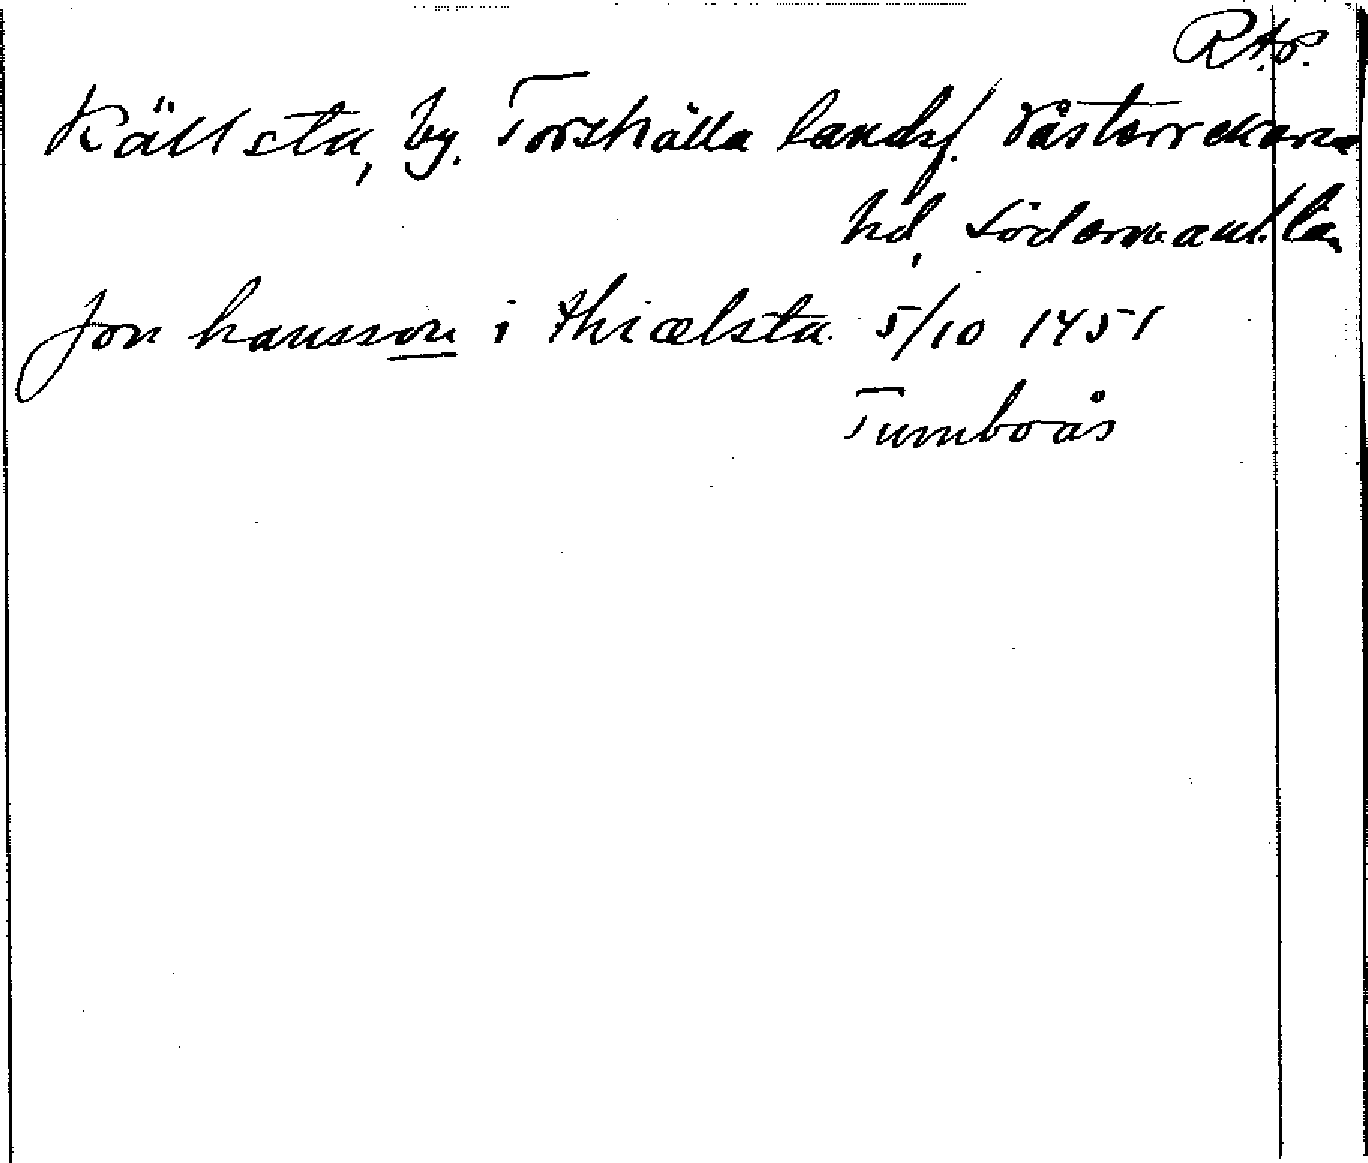 R.A.P.
Källsta, by. Torshälla landsf. Västerrekarne
hd, Södermanl. län
Jon hansson i thiælsta 5/10 1451
Tumboås